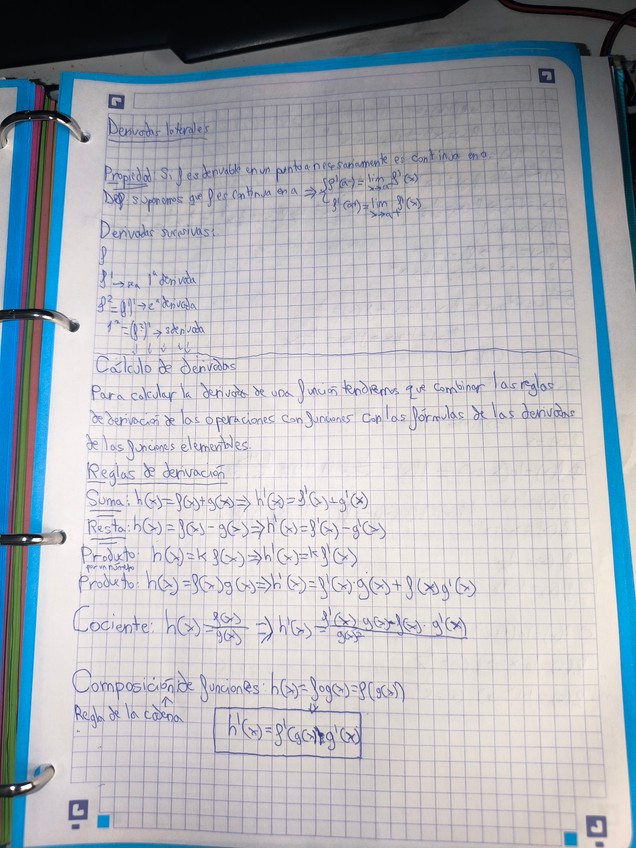 Derivadas laterales
Propiedad: Si f es derivable en un punto a necesariamente es continua en a
Def: suponemos que f es continua en a ⇒ { f'(a⁻) = lim x→a⁻ f'(x)
f'(a⁺) = lim x→a⁺ f'(x)
Derivadas sucesivas:
f
f' → 1ª derivada
f² = (f')' → 2ª derivada
f³ = (f²)' → 3 derivada
↓ ↓ ↓ ↓
Cálculo de derivadas
Para calcular la derivada de una función tendremos que combinar las reglas
de derivación de las operaciones con funciones con las fórmulas de las derivadas
de las funciones elementales.
Reglas de derivación
Suma: h(x) = f(x) + g(x) ⇒ h'(x) = f'(x) + g'(x)
Resta: h(x) = f(x) - g(x) ⇒ h'(x) = f'(x) - g'(x)
Producto: h(x) = k f(x) ⇒ h'(x) = k f'(x)
por un número
Producto: h(x) = f(x) g(x) ⇒ h'(x) = f'(x)·g(x) + f(x) g'(x)
Cociente: h(x) = f(x)/g(x) ⇒ h'(x) = f'(x)·g(x) - f(x)·g'(x)/g(x)²
Composición de funciones: h(x) = f∘g(x) = f(g(x))
Regla de la cadena
h'(x) = f'(g(x))·g'(x)